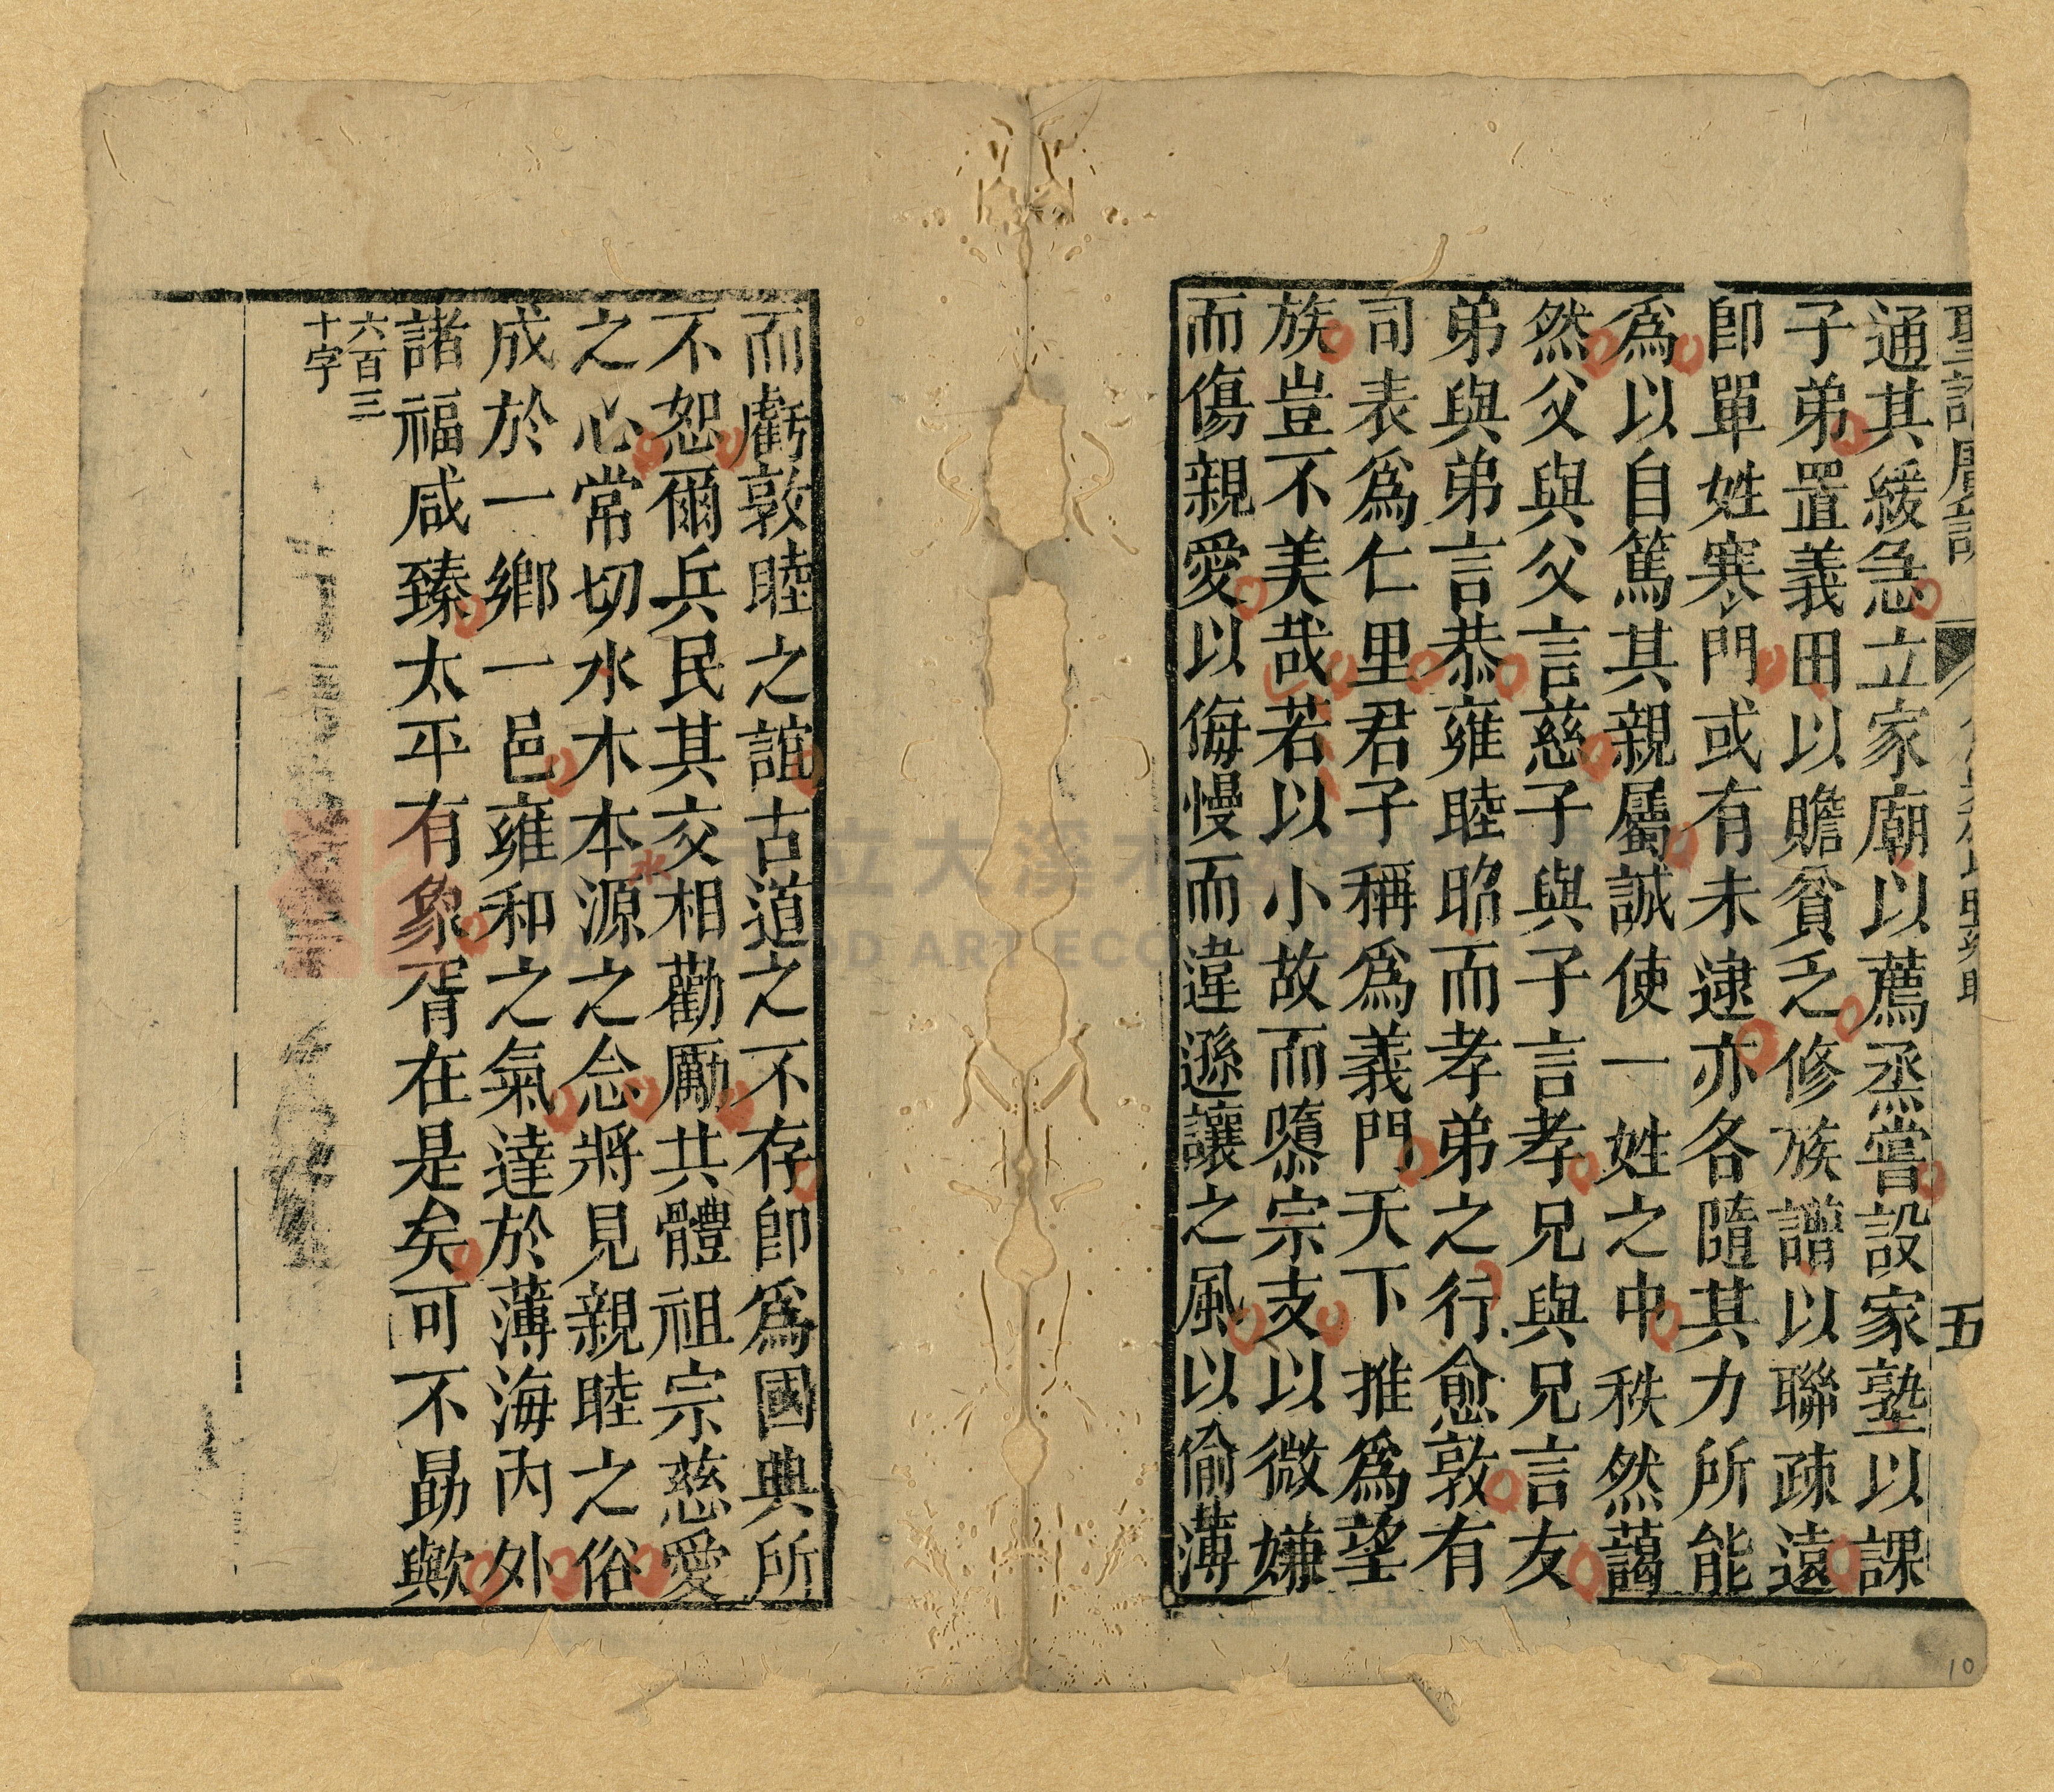 聖諭廣訓
五
通其緩急立家廟以薦烝嘗設家塾以課
子弟置義田以贍貧乏修族譜以聯疎遠
卽單姓寒門或有未逮亦各隨其力所能
爲以自篤其親屬誠使一姓之中秩然藹
然父與父言慈子與子言孝兄與兄言友
弟與弟言恭雍睦昭而孝弟之行愈敦有
司表爲仁里君子稱爲義門天下推爲望
族豈不美哉若以小故而隳宗支以微嫌
而傷親愛以侮慢而違遜讓之風以偷薄
而虧敦睦之誼古道之不存卽爲國典所
不恕爾兵民其交相勸勵共體祖宗慈愛
之心常切水木本源之念將見親睦之俗
成於一鄉一邑雍和之氣達於薄海內外
諸福咸臻太平有象胥在是矣可不勗歟
六百三
十字
水
立大溪木
WOOD ART ECO
10